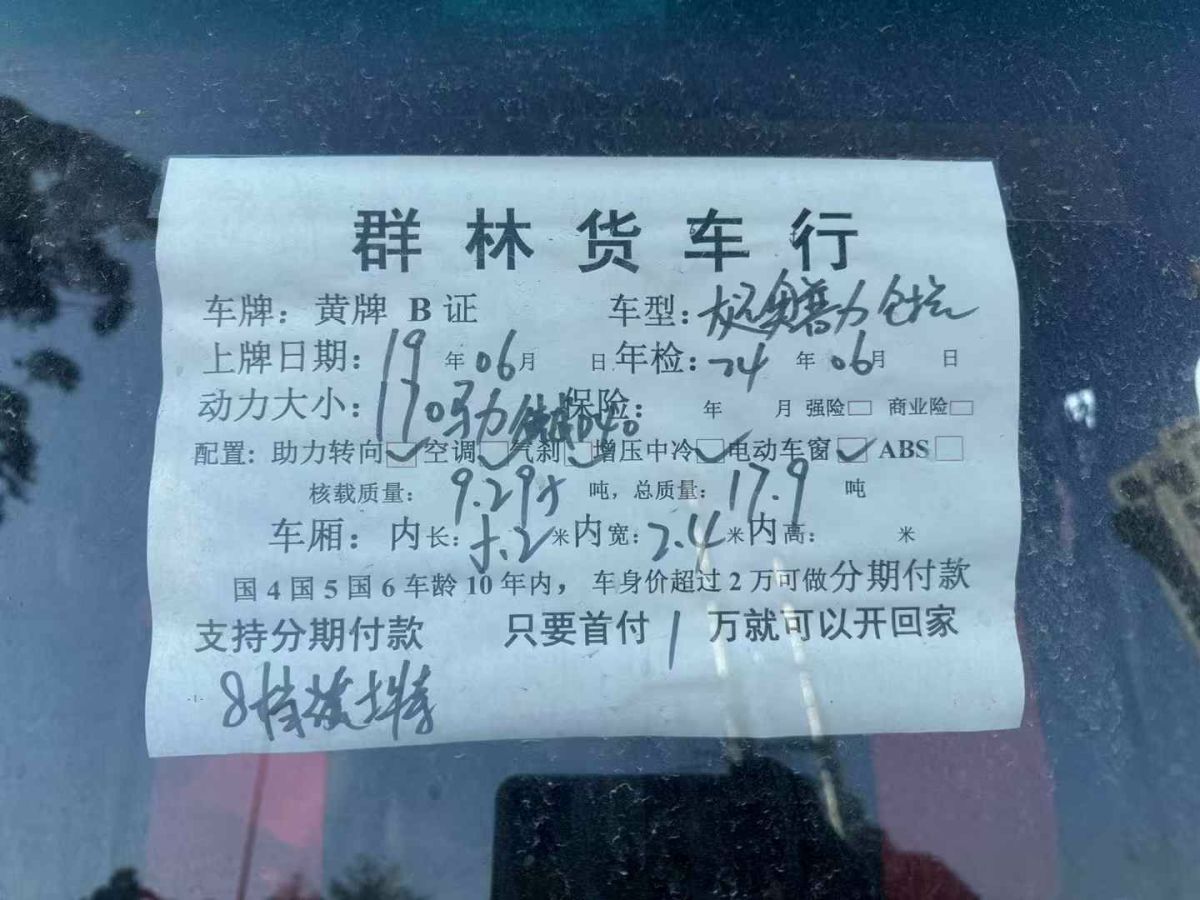 群林货车行
车牌：黄牌 B 证 车型：奥普力仓
上牌日期：19 年 06 月 日 年检：24 年 06 月 日
动力大小：170马力 保险： 年 月 强险□ 商业险□
配置：助力转向☑ 空调☑ 气刹☑ 增压中冷☑ 电动车窗☑ ABS□
核载质量：9.295 吨，总质量：17.9 吨
车厢：内长：5.2 米 内宽：2.4 米 内高： 米
国 4 国 5 国 6 车龄 10 年内， 车身价超过 2 万可做分期付款
支持分期付款 只要首付 1 万就可以开回家
8挡